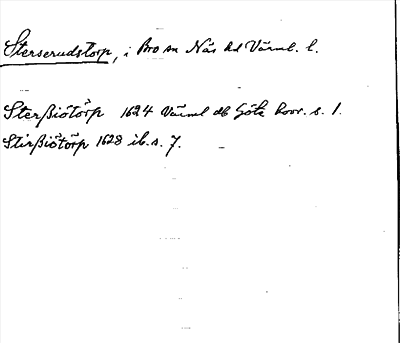 Sterserudstorp, i Bro sn Näs hd Värml. l.
Sterßiötörp 1624 Värml db Göta hovr. s. 1.
Stirßiötörp 1628 ib. s. 7.